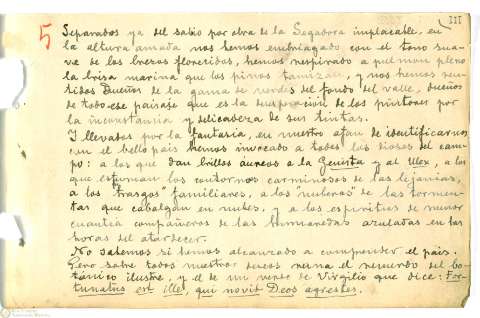 III
5
Separados ya del sabio por obra de la Segadora implacable, en
la altura amada nos hemos embriagado con el tono sua-
ve de los brezos florecidos, hemos respirado a pulmon pleno
la brisa marina que los pinos tamizan, y nos hemos sen-
tidos dueños de la gama de verdes del fondo del valle, dueños
de todo ese paisaje que es la desesperación de los pintores por
la inconstancia y delicadeza de sus tintas.
Y llevados por la fantasia, en nuestro afan de identificarnos
con el bello pais hemos invocado a todos los dioses del cam-
po: a los que dan brillos áureos a la Genista y al Ulex, a los
que esfuman los contornos carminosos de las lejanias,
a los "trasgos" familiares, a los "nuberos" de las tormen-
tas que cabalgan en nubes, y a los espiritus de menor
cuantia compañeros de las humaredas azuladas en las
horas del atardecer.
No sabemos si hemos alcanzado a comprender el pais.
Pero sobre todos nuestros deseos reina el recuerdo del bo-
tánico ilustre, y el de un verso de Virgilio que dice: For-
tunatus est ille, qui novit Deos agrestes.